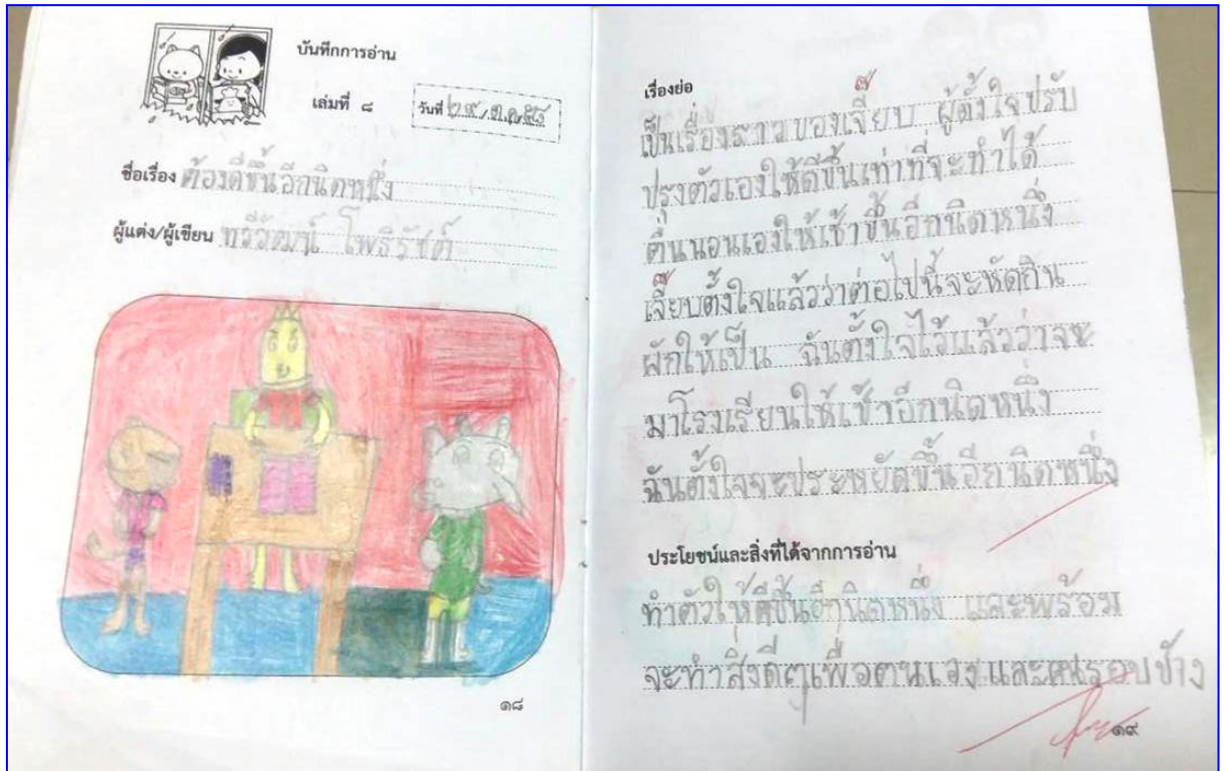 บันทึกการอ่าน
เล่มที่ ๘
วันที่ ๒๙/ต.ค/๕๘
ชื่อเรื่อง ต้องดีขึ้นอีกนิดหนึ่ง
ผู้แต่ง/ผู้เขียน ทวีวัฒน์ โพธิรัชต์
๑๘
เรื่องย่อ
เป็นเรื่องราวของเจี๊ยบ ผู้ตั้งใจปรับ
ปรุงตัวเองให้ดีขึ้นเท่าที่จะทำได้
ตื่นนอนเองให้เช้าขึ้นอีกนิดหนึ่ง
เจี๊ยบตั้งใจแล้วว่าต่อไปนี้จะหัดกิน
ผักให้เป็น ฉันตั้งใจไว้แล้วว่าจะ
มาโรงเรียนให้เช้าอีกนิดหนึ่ง
ฉันตั้งใจจะประหยัดขึ้นอีกนิดหนึ่ง
ประโยชน์และสิ่งที่ได้จากการอ่าน
ทำตัวให้ดีขึ้นอีกนิดหนึ่ง และพร้อม
จะทำสิ่งดีๆเพื่อตนเองและคนรอบข้าง
๑๙